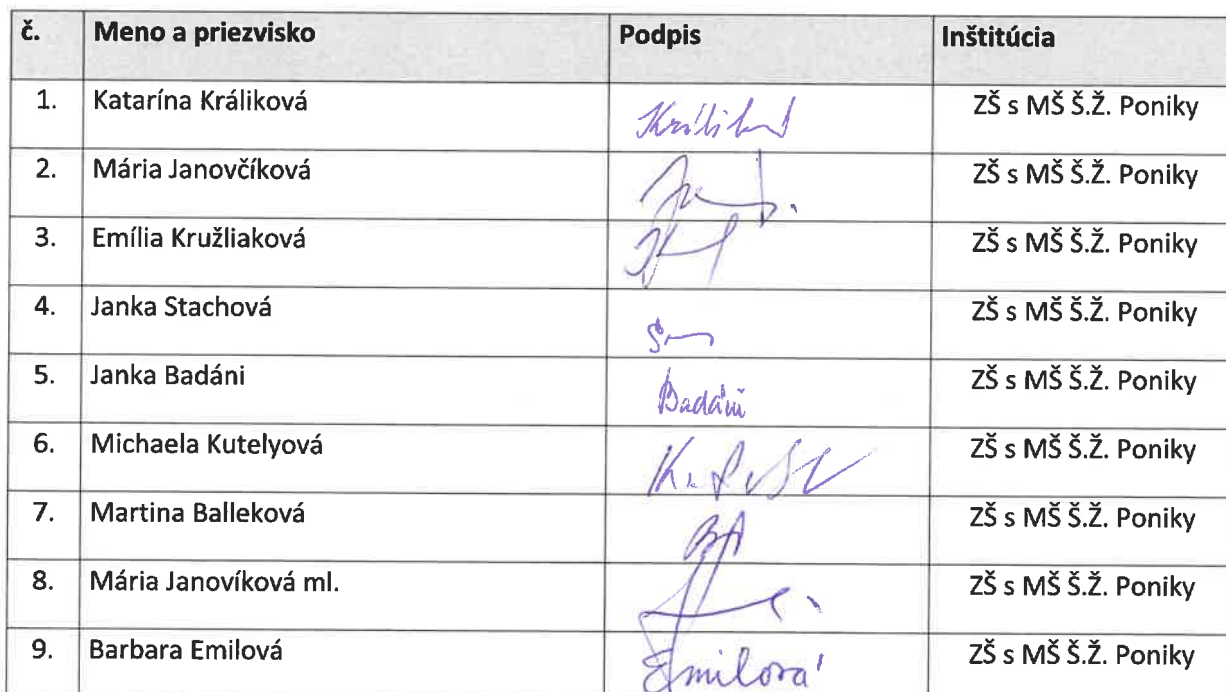 č. Meno a priezvisko Podpis Inštitúcia
1. Katarína Králiková ZŠ s MŠ Š.Ž. Poniky
2. Mária Janovčíková ZŠ s MŠ Š.Ž. Poniky
3. Emília Kružliaková ZŠ s MŠ Š.Ž. Poniky
4. Janka Stachová ZŠ s MŠ Š.Ž. Poniky
5. Janka Badáni Badáni ZŠ s MŠ Š.Ž. Poniky
6. Michaela Kutelyová ZŠ s MŠ Š.Ž. Poniky
7. Martina Balleková ZŠ s MŠ Š.Ž. Poniky
8. Mária Janovíková ml. ZŠ s MŠ Š.Ž. Poniky
9. Barbara Emilová Emilová ZŠ s MŠ Š.Ž. Poniky